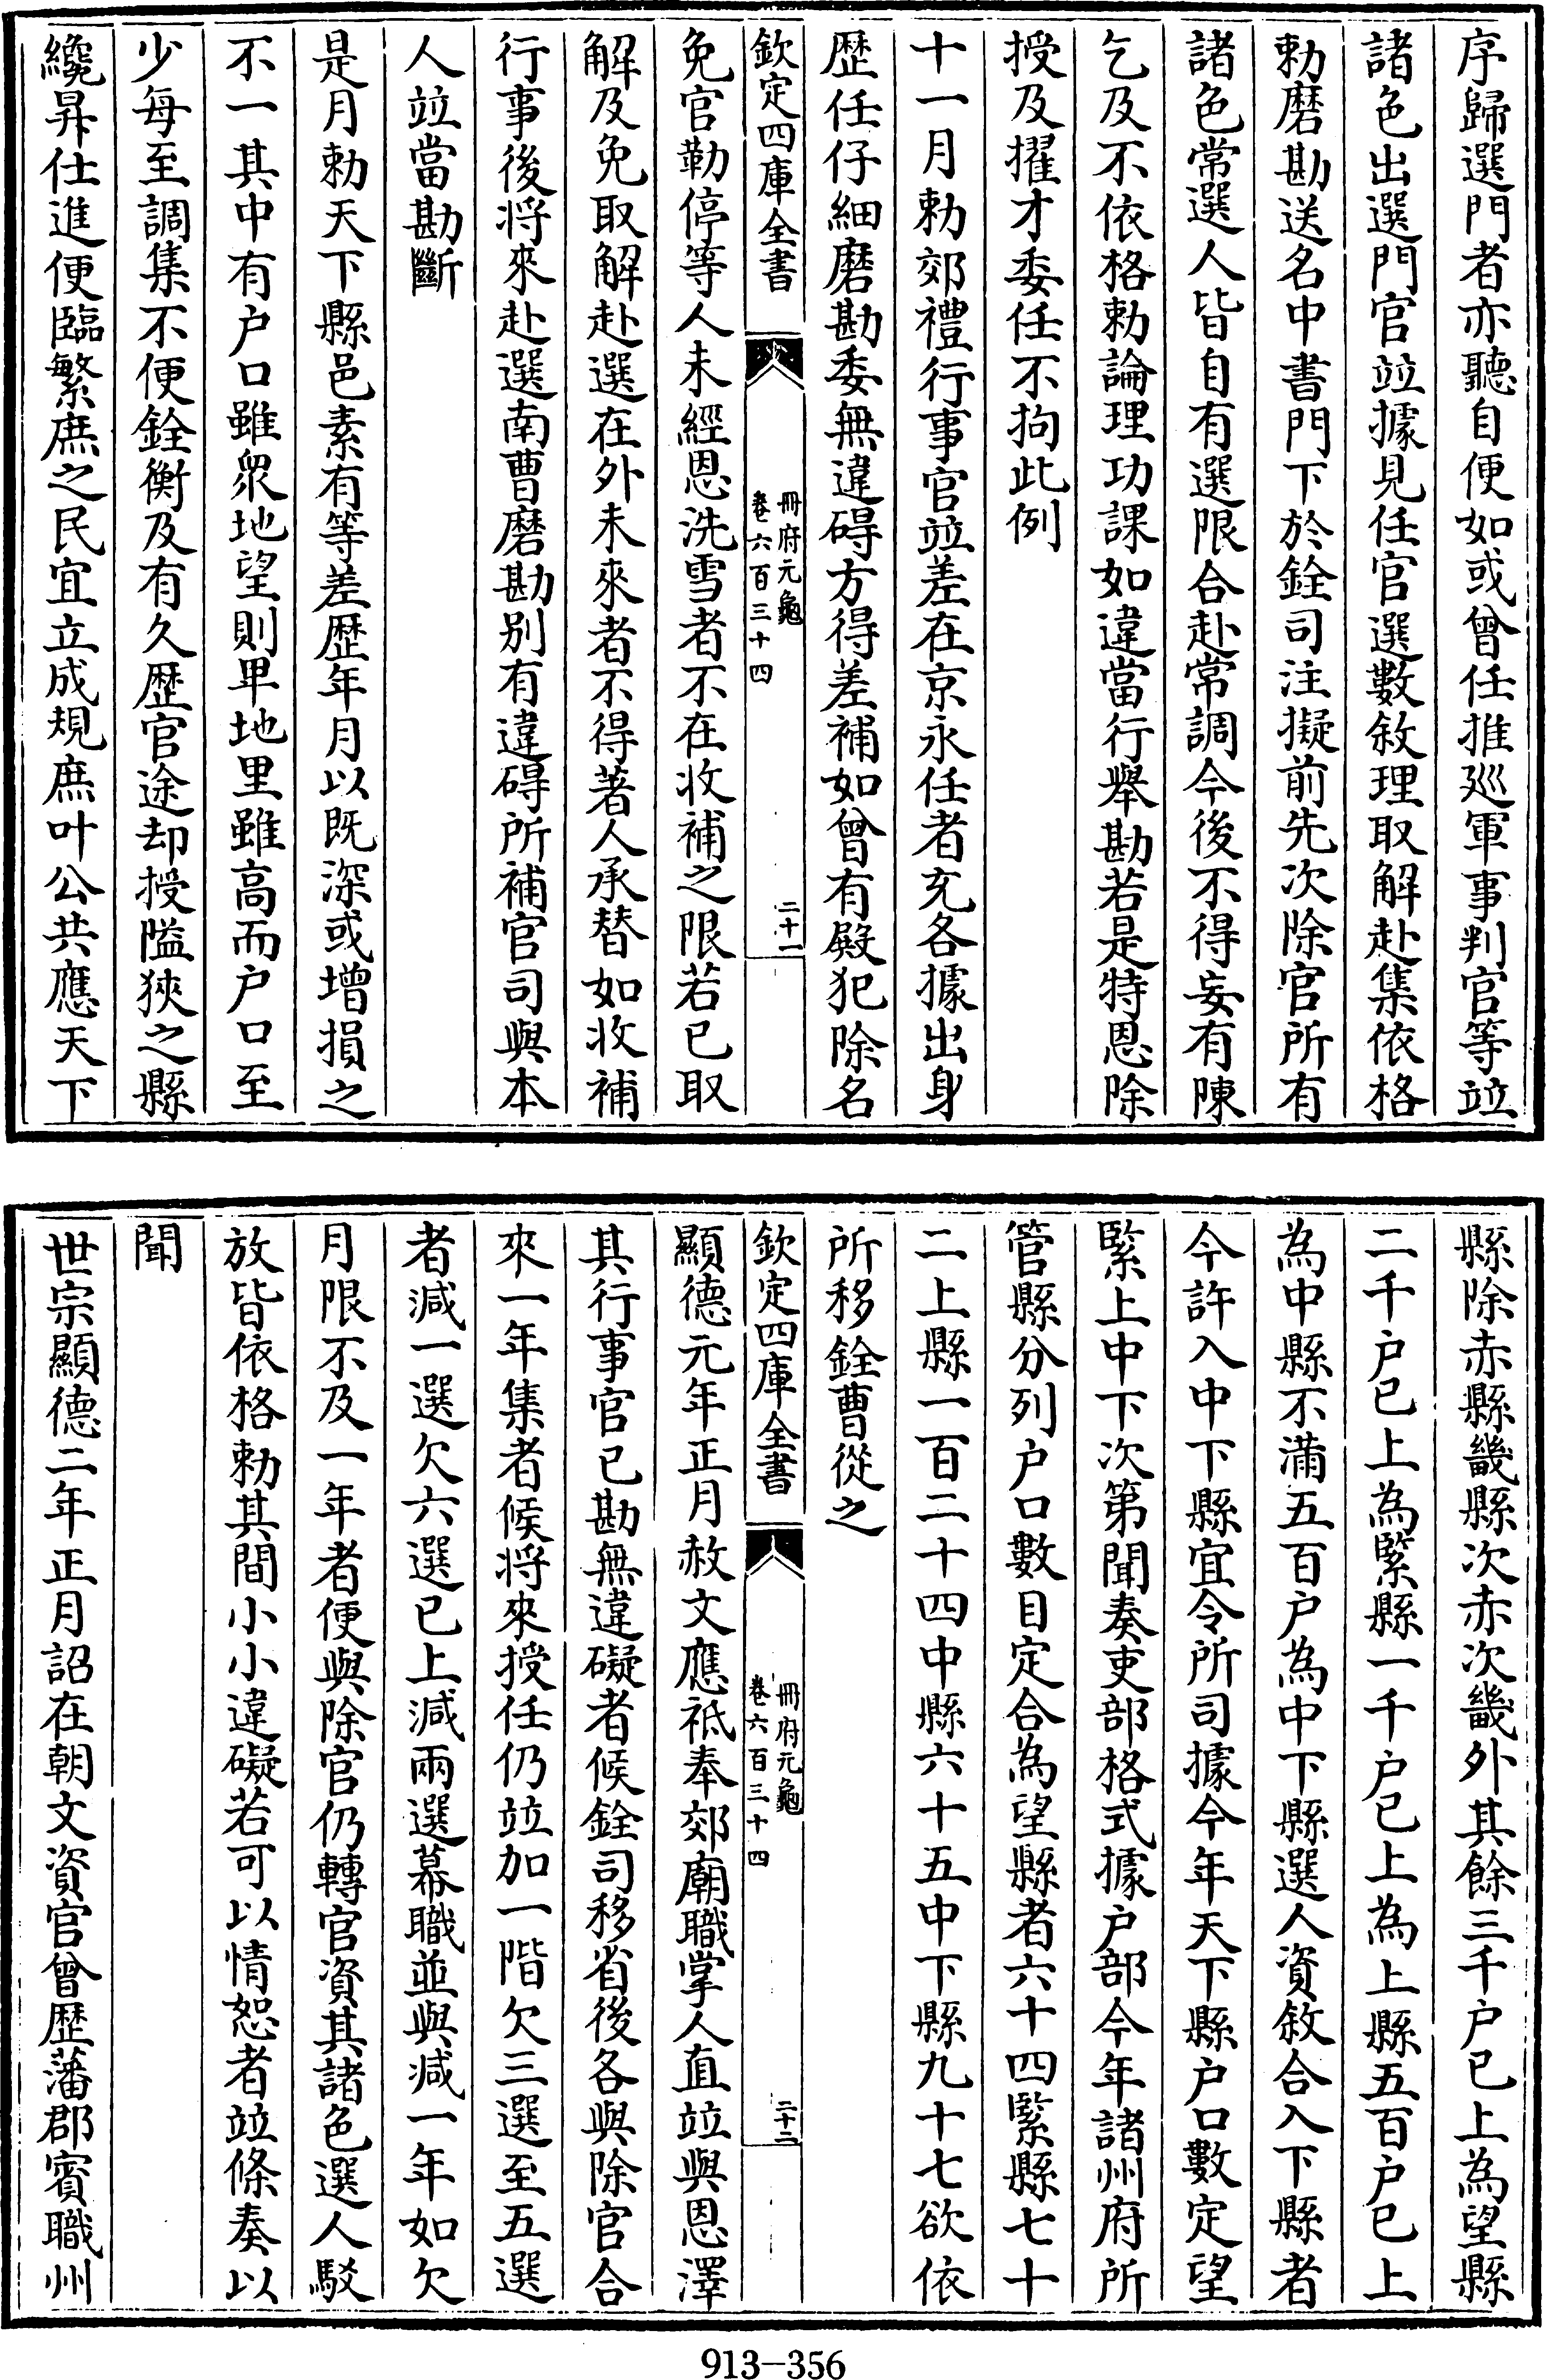 序歸選門者亦聽自便如或曾任推廵軍事判官等竝
諸色出選門官竝據見任官選數敘理取解赴集依格
勅磨勘送名中書門下於銓司注擬前先次除官所有
諸色常選人皆自有選限合赴常調今後不得妄有陳
乞及不依格勅論理功課如違當行舉勘若是特恩除
授及擢才委任不拘此例
十一月勅郊禮行事官竝差在京永任者充各據出身
歴任仔細磨勘委無違碍方得差補如曾有殿犯除名
欽定四庫全書
冊府元龜
卷六百三十四
二十一
免官勒停等人未經恩洗雪者不在收補之限若已取
解及免取解赴選在外未來者不得著人承替如收補
行事後将來赴選南曹磨勘别有違碍所補官司與本
人竝當勘斷
是月勅天下縣邑素有等差歴年月以既深或增損之
不一其中有户口雖衆地望則卑地里雖高而户口至
少每至調集不便銓衡及有久歴官途却授隘狹之縣
纔昇仕進便臨繁庶之民宜立成規庶叶公共應天下
縣除赤縣畿縣次赤次畿外其餘三千户已上為望縣
二千户已上為緊縣一千户已上為上縣五百户已上
為中縣不滿五百户為中下縣選人資敘合入下縣者
今許入中下縣宜令所司據今年天下縣户口數定望
緊上中下次第聞奏吏部格式據户部今年諸州府所
管縣分列户口數目定合為望縣者六十四緊縣七十
二上縣一百二十四中縣六十五中下縣九十七欲依
所移銓曹從之
欽定四庫全書
冊府元龜
卷六百三十四
二十二
顯德元年正月赦文應祗奉郊廟職掌人直竝與恩澤
其行事官已勘無違礙者候銓司移省後各與除官合
來一年集者候将來授任仍竝加一階欠三選至五選
者減一選欠六選已上減兩選幕職並與減一年如欠
月限不及一年者便與除官仍轉官資其諸色選人駁
放皆依格勅其間小小違礙若可以情恕者竝條奏以
聞
世宗顯德二年正月詔在朝文資官曾歴藩郡賓職州
913-356